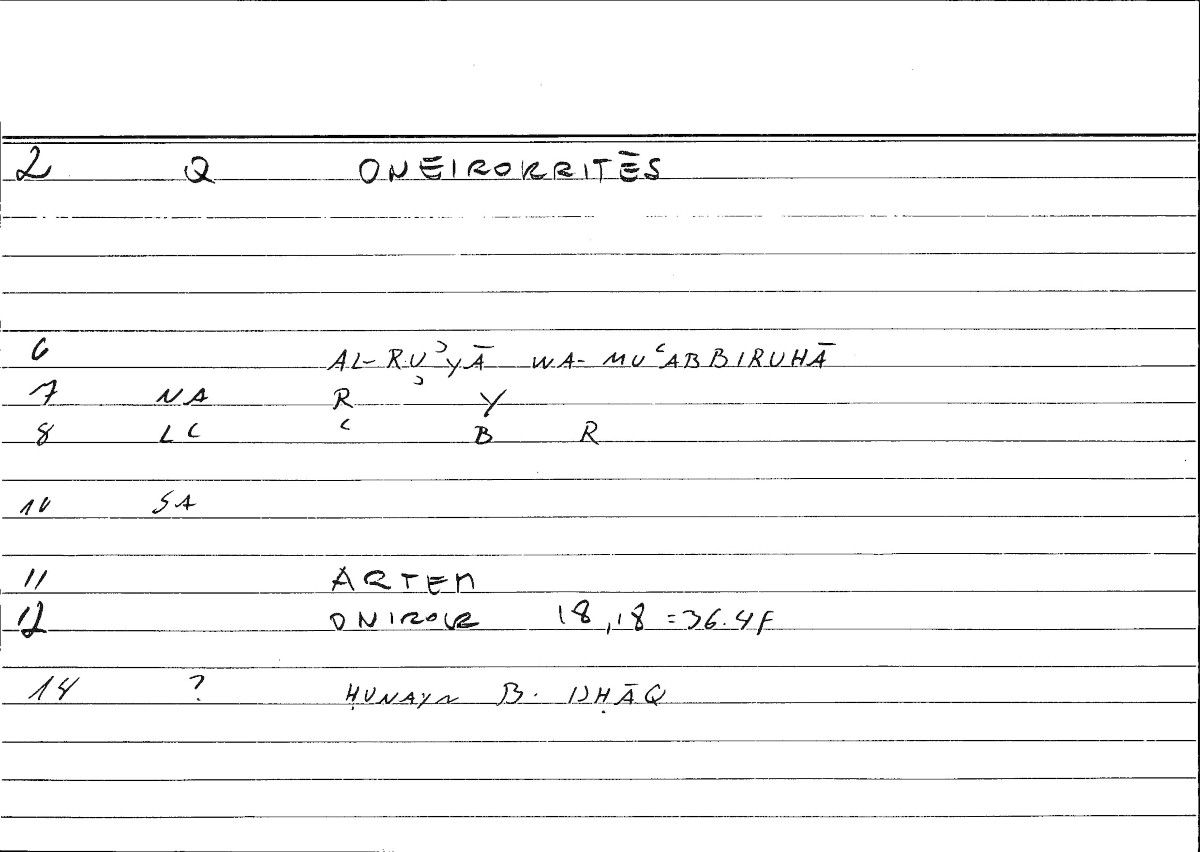 2 Q ONEIROKRITĒS
6 AL-RUʾYĀ WA-MUʿABBIRUHĀ
7 NA R ʾ Y
8 LC ʿ B R
10 SA
11 ARTEM
12 ONIROKR 18,18 =36.4F
14 ? ḤUNAYN B. ISḤĀQ